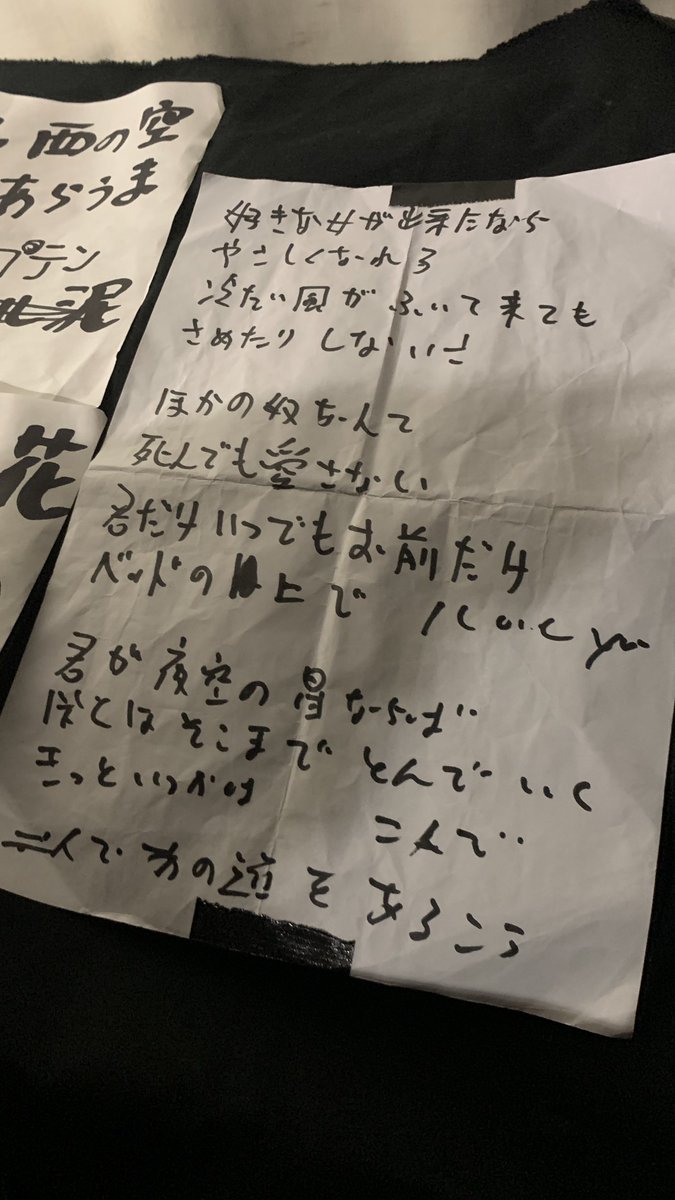 西の空
あらうま
プテン
泥
花
好きな女が出来たなら
やさしくなれる
冷たい風がふいて来ても
さめたりしないさ
ほかの奴なんて
死んでも愛さない
君だけいつでもお前だけ
ベッドの上で
君が夜空の星ならば
ぼくはそこまでとんでいく
きっといつかは
二人で
二人で
をあるこう